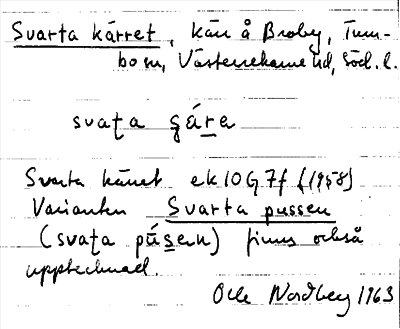 Svarta kärret, kärr å Broby, Tum-
bo sn, Västerrekarne hd, Söd. l.
svaṭa ʂä́rẹ
Svarta kärret ek 10G 7f (1958)
Varianten Svarta pussen
(svaṭa pússen) finns också
upptecknad.
Olle Nordberg 1963